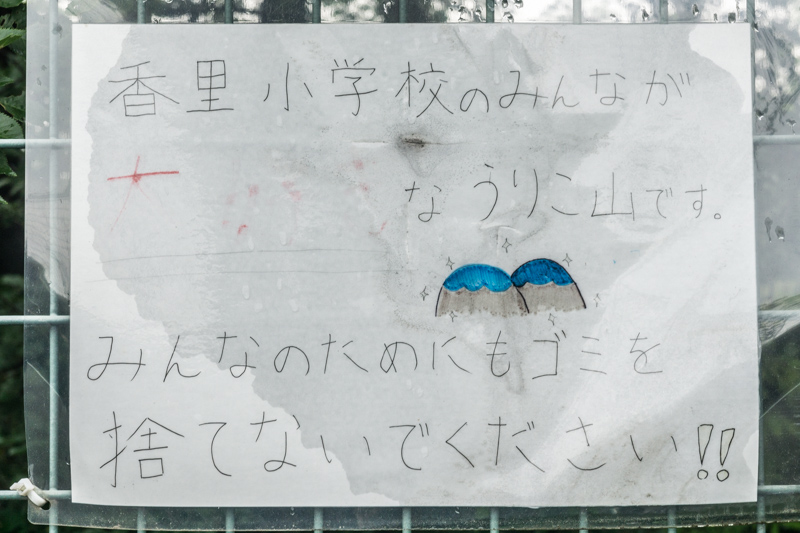 香里小学校のみんなが
大 な うりこ山です。
みんなのためにもゴミを
捨てないでください!!